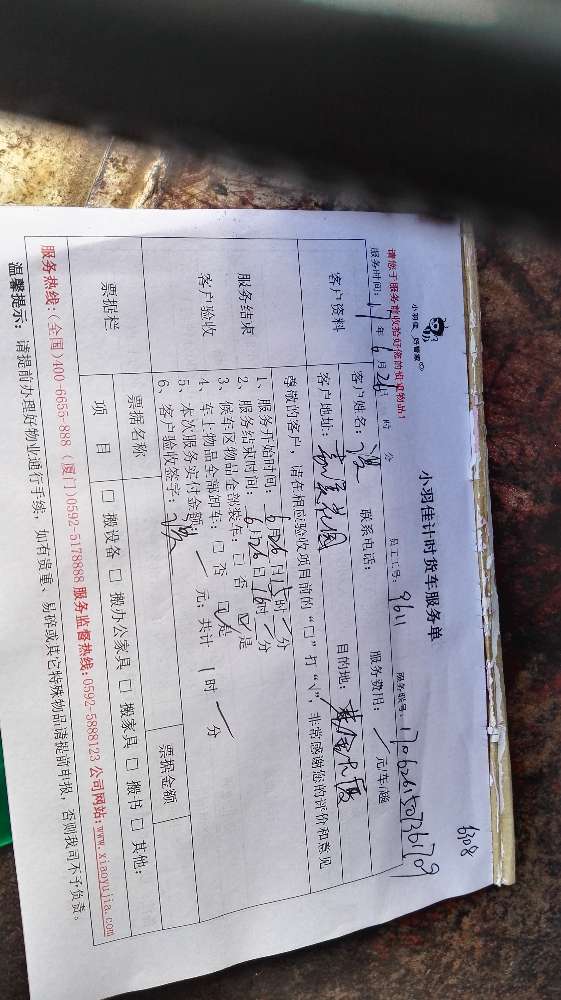 6308
小羽佳 好管家
小羽佳计时货车服务单
请您于服务前收拾好您的贵重物品！
服务时间：17年6月26日 时 分 员工工号：9611 服务账号：170626150736709
客户资料 客户姓名： 联系电话： 服务费用：/元/车/趟
客户地址： 花园 目的地：
尊敬的客户，请在相应验收项目前的“□”打“√”，非常感谢您的评价和意见
服务结束
客户验收
1、服务开始时间：6月26日15时/分
2、服务结束时间：6月26日16时/分
3、候车区物品全部装车：□ 否 ☑ 是
4、车上物品全部卸车：□ 否 ☑ 是
5、本次服务实付金额：/元；共计 1 时/分
6、客户验收签字：
票据栏 票据名称 票据金额
项 目 □ 搬设备 □ 搬办公家具 □ 搬家具 □ 搬书 □ 其他：
服务热线：(全国)400-6655-888 (厦门)0592-5178888 服务监督热线：0592-5888123 公司网站：www.xiaoyujia.com
温馨提示：请提前办理好物业通行手续，如有贵重、易碎或其它特殊物品请提前申报，否则我司不予负责。